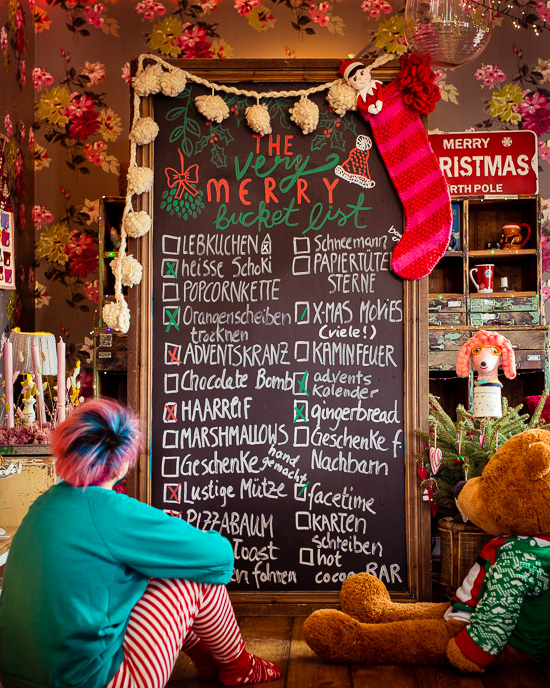 THE
very
MERRY
bucket list
LEBKUCHEN
heisse Schoki
POPCORNKETTE
Orangenscheiben
trocknen
ADVENTSKRANZ
Chocolate Bomb
HAARREIF
MARSHMALLOWS
Geschenke hand
gemacht
Lustige Mütze
PIZZABAUM
Toast
fahren
Schneemann
PAPIERTÜTEN
STERNE
X-MAS MOVIES
(viele!)
KAMINFEUER
advents
Kalender
gingerbread
Geschenke f.
Nachbarn
facetime
KARTEN
schreiben
hot
cocoa BAR
MERRY
CHRISTMAS
NORTH POLE